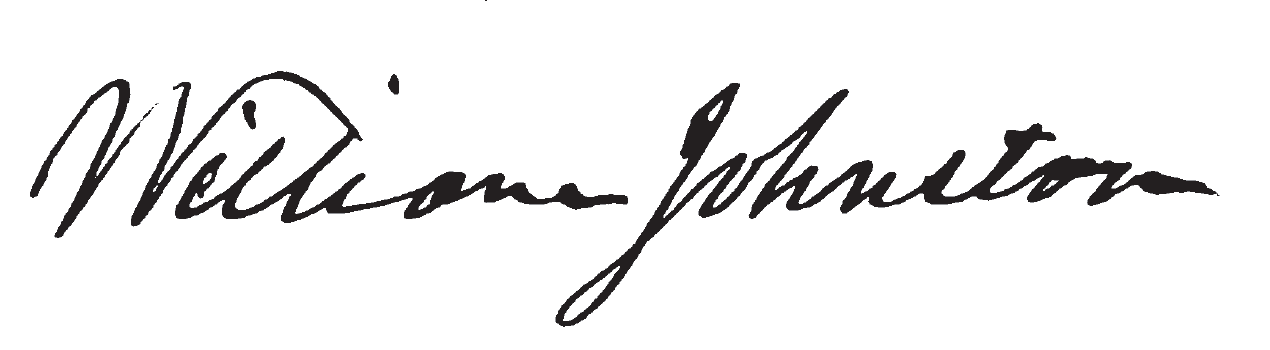 William Johnston